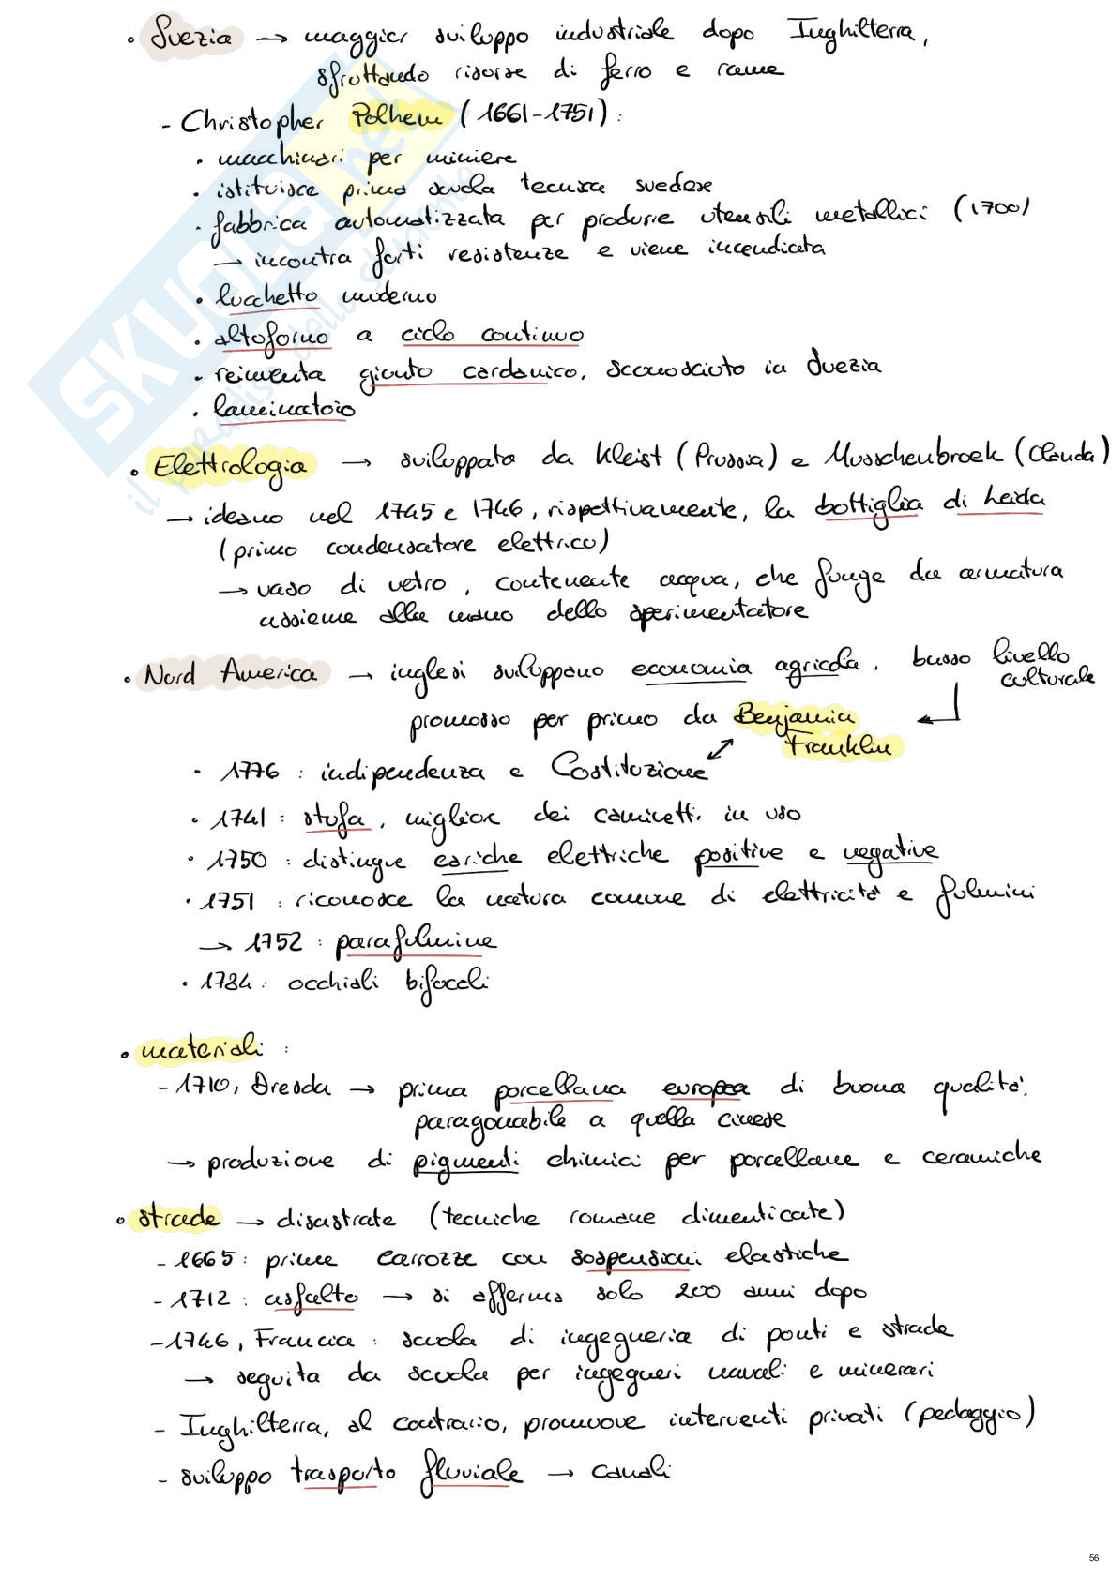 • Svezia → maggior sviluppo industriale dopo Inghilterra,
sfruttando risorse di ferro e rame
- Christopher Polhem (1661-1751):
• macchinari per miniere
• istituisce prima scuola tecnica svedese
• fabbrica automatizzata per produrre utensili metallici (1700)
→ incontra forti resistenze e viene incendiata
• lucchetto moderno
• altoforno a ciclo continuo
• reinventa giunto cardanico, sconosciuto in Svezia
• laminatoio
• Elettrologia → sviluppata da Kleist (Prussia) e Musschenbroek (Olanda)
→ ideano nel 1745 e 1746, rispettivamente, la bottiglia di Leida
(primo condensatore elettrico)
→ vaso di vetro, contenente acqua, che funge da armatura
assieme alla mano dello sperimentatore
• Nord America → inglesi sviluppano economia agricola. basso livello
culturale
promosso per primo da Benjamin
Franklin
- 1776: indipendenza e Costituzione
• 1741: stufa, miglior dei caminetti in uso
• 1750: distingue cariche elettriche positive e negative
• 1751: riconosce la natura comune di elettricità e fulmini
→ 1752: parafulmine
• 1784: occhiali bifocali
• materiali:
- 1710, Dresda → prima porcellana europea di buona qualità,
paragonabile a quella cinese
→ produzione di pigmenti chimici per porcellane e ceramiche
• strade → disastrate (tecniche romane dimenticate)
- 1665: prime carrozze con sospensioni elastiche
- 1712: asfalto → si afferma solo 200 anni dopo
- 1746, Francia: scuola di ingegneria di ponti e strade
→ seguita da scuola per ingegneri navali e minerari
- Inghilterra, al contrario, promuove interventi privati (pedaggio)
- sviluppo trasporto fluviale → canali
56